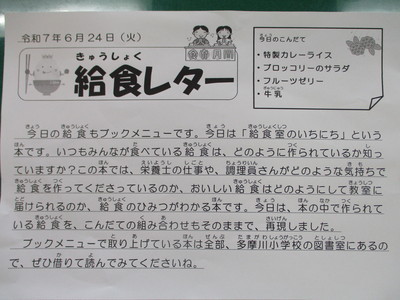 令和7年6月24日(火)
きゅうしょく
給食レター
今日のこんだて
・特製カレーライス
・ブロッコリーのサラダ
・フルーツゼリー
・牛乳
今日の給食もブックメニューです。今日は「給食室のいちにち」という
本です。いつもみんなが食べている給食は、どのように作られているか知っ
ていますか?この本では、栄養士の仕事や、調理員さんがどのような気持ちで
給食を作ってくださっているのか、おいしい給食はどのようにして教室に
届けられるのか、給食のひみつがわかる本です。今日は、本の中で作られて
いる給食を、こんだての組み合わせもそのままで、再現しました。
ブックメニューで取り上げている本は全部、多摩川小学校の図書室にあるの
で、ぜひ借りて読んでみてくださいね。